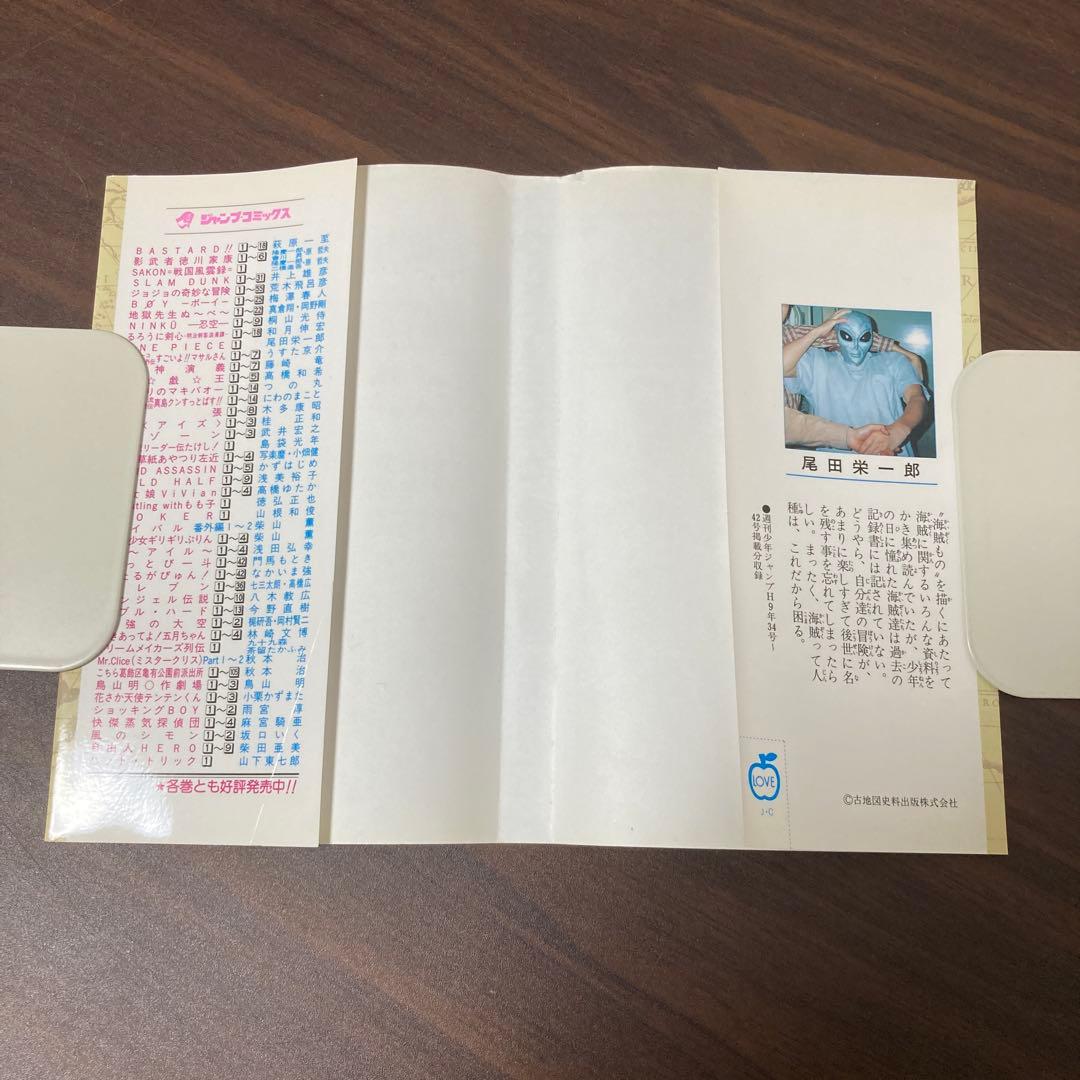 ジャンプ・コミックス
BASTARD!! 1～18 萩原一至
影武者徳川家康 1～6
SAKON=戦国風雲録= 1
SLAM DUNK 1～31 井上雄彦
ジョジョの奇妙な冒険 1～55 荒木飛呂彦
BØY －ボーイ－ 1～25 梅澤春人
地獄先生ぬ～べ～ 1～22 真倉翔・岡野剛
NINKŪ ―忍空― 1～9 桐山光侍
るろうに剣心 1～18 和月伸宏
NE PIECE 1 尾田栄一郎
すごいよ!!マサルさん 1～7 うすた京介
神演義 1～7 藤崎竜
☆戯☆王 1～5 高橋和希
りのマキバオー 1～14 つの丸
真島クンすっとばす!! 1～14 にわのまこと
張 1～8 木多康昭
アイズ〉 1～3 桂正和
ゾーン 1～3 武井宏之
リーダー伝たけし! 1 島袋光年
草紙あやつり左近 1～4 写楽麿・小畑健
D ASSASSIN 1～5 かずはじめ
LD HALF 1～9 浅美裕子
娘ViVian 1～4 高橋ゆたか
tling withもも子 1 徳弘正也
OKER 1 山根和俊
イバル 番外編1～2 柴山薫
少女ギリギリぷりん 1～4 柴山薫
～アイル～ 1～4 浅田弘幸
っとび一斗 1～42 門馬もとき
るがぴゅん! 1～42 なかいま強
レブン 1～36 七三太朗・高橋広
ンジェル伝説 1～10 八木教広
ブル・ハード 1～13 今野直樹
強の大空 1～2 梶研吾・岡村賢二
きあってよ!五月ちゃん 1～4 林崎文博
リームメイカーズ列伝 1 九十九森 茶留たかふみ
Mr.Clice(ミスタークリス) Part1～2 秋本治
こちら葛飾区亀有公園前派出所 1～105 秋本治
鳥山明○作劇場 1～3 鳥山明
花さか天使テンテンくん 1～3 小栗かずまた
ショッキングBOY 1～2 雨宮淳
快傑蒸気探偵団 1～4 麻宮騎亜
風のシモン 1～2 坂口いく
自由人HERO 1～9 柴田亜美
ハット・トリック 1 山下東七郎
★各巻とも好評発売中!!
尾田栄一郎
“海賊もの”を描くにあたって
海賊に関するいろんな資料を
かき集め読んでいたが、少年
の日に憧れた海賊達は過去の
記録書には記されていない。
どうやら、自分達の冒険が、
あまりに楽しすぎて後世に名
を残す事を忘れてしまったら
しい。まったく、海賊って人
種は、これだから困る。
●週刊少年ジャンプH9年34号～
42号掲載分収録
LOVE
J・C
©古地図史料出版株式会社